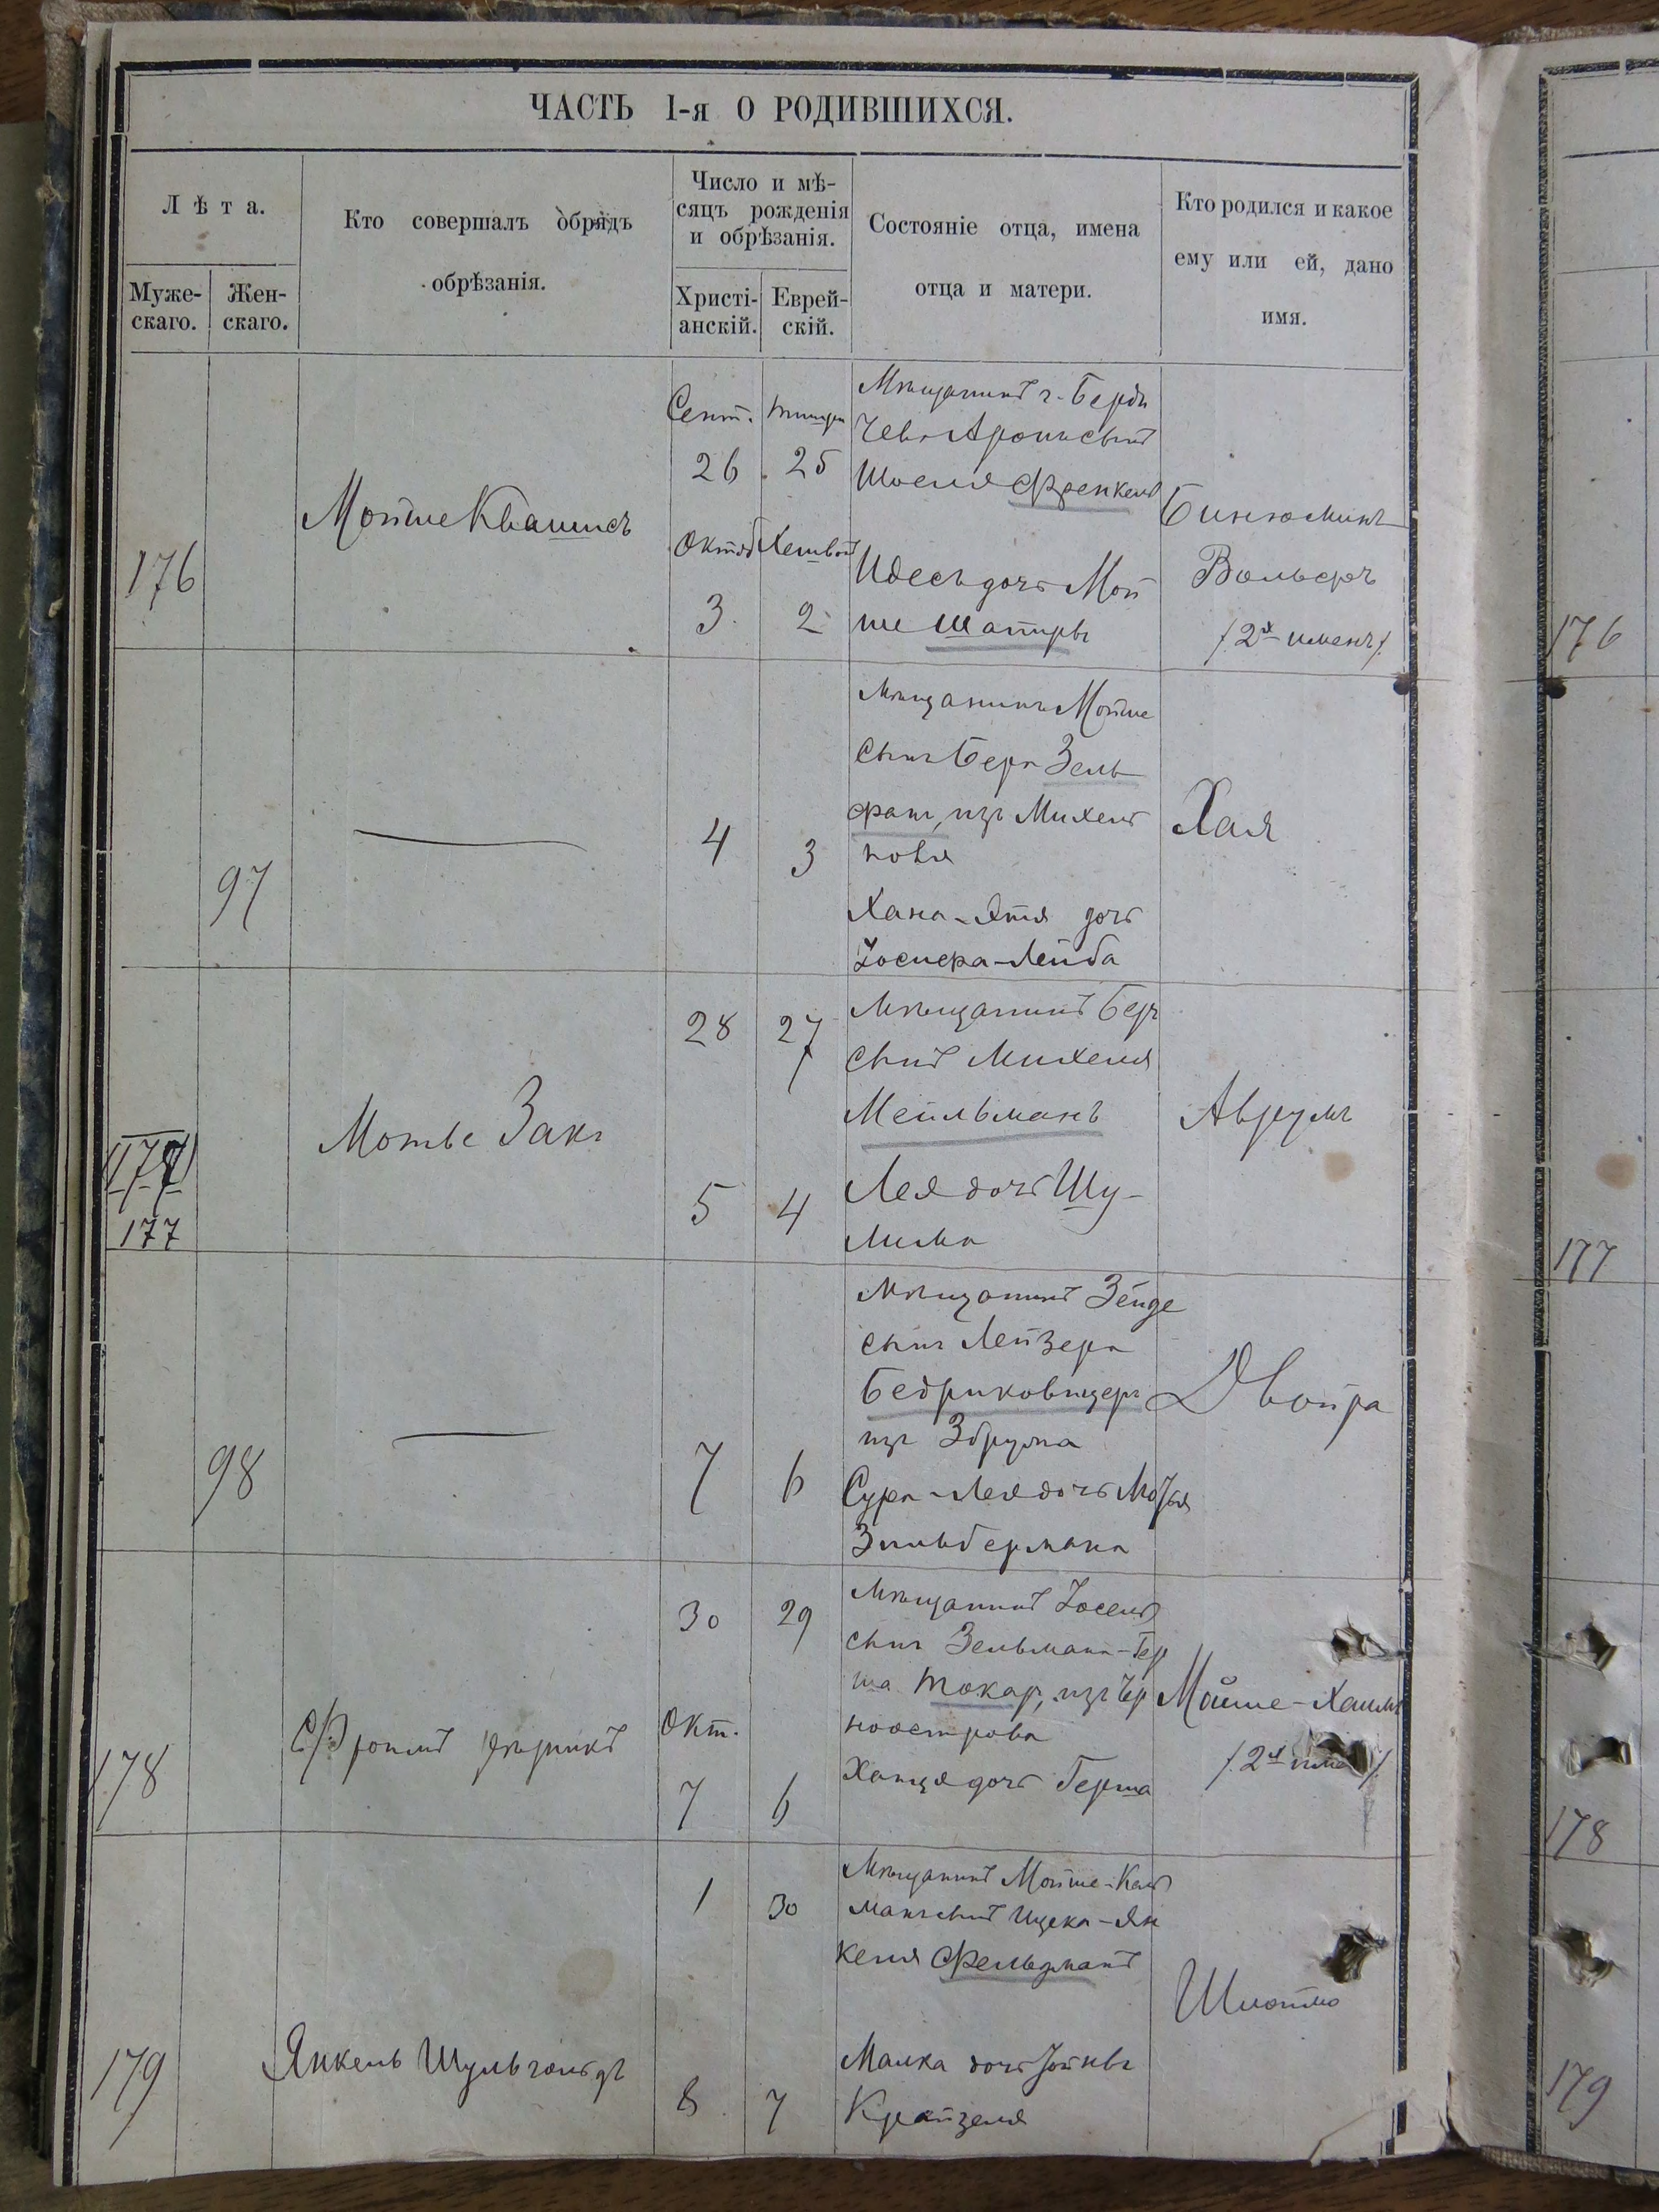 ЧАСТЬ 1-я О РОДИВШИХСЯ.
Лѣта.
Муже-
скаго.
Жен-
скаго.
Кто совершалъ обрядъ
обрѣзанія.
Число и мѣ-
сяцъ рожденія
и обрѣзанія.
Христі-
анскій.
Еврей-
скій.
Состояніе отца, имена
отца и матери.
Кто родился и какое
ему или ей, дано
имя.
176
Мойше Квашисъ
Сент.
26
Октяб
3
Тишри
25
Хешвон
2
Мѣщанинъ г. Берди
чева Аронъ сынъ
Шоеля Френкель
Идесь дочь Мой
ше Шапиры
Бинюминъ
Вольфъ
/2х именъ/
97
4
3
Мѣщанинъ Мойше
сынъ Бера Зель
фанъ, изъ Михель
новка
Хана-Етя дочь
Іосифа-Лейба
Хая
177
177
Мотье Закъ
28
27
5
4
Мѣщанинъ Беръ
сынъ Михеля
Мейльманъ
Лея дочь Шу-
лима
Аврумъ
98
7
6
Мѣщанинъ Зейде
сынъ Лейзера
Бедриковицеръ
изъ Збружа
Сура-Лея дочь
Зильбермана
Двойра
178
Фроимъ
30
29
Окт.
7
6
Мѣщанинъ Іосель
сынъ Зельмана-Гер
ша Токар, изъ Чер
ноострова
Ханця дочь Герша
Мойше-Хаимъ
/2х имен/
179
Янкель Шульгольдъ
1
30
8
7
Мѣщанинъ Мойше-Кель
манъ сынъ Ицека-Ян
келя Фельдманъ
Малка дочь Іойны
Крайзеля
Шлойме
176
177
178
179